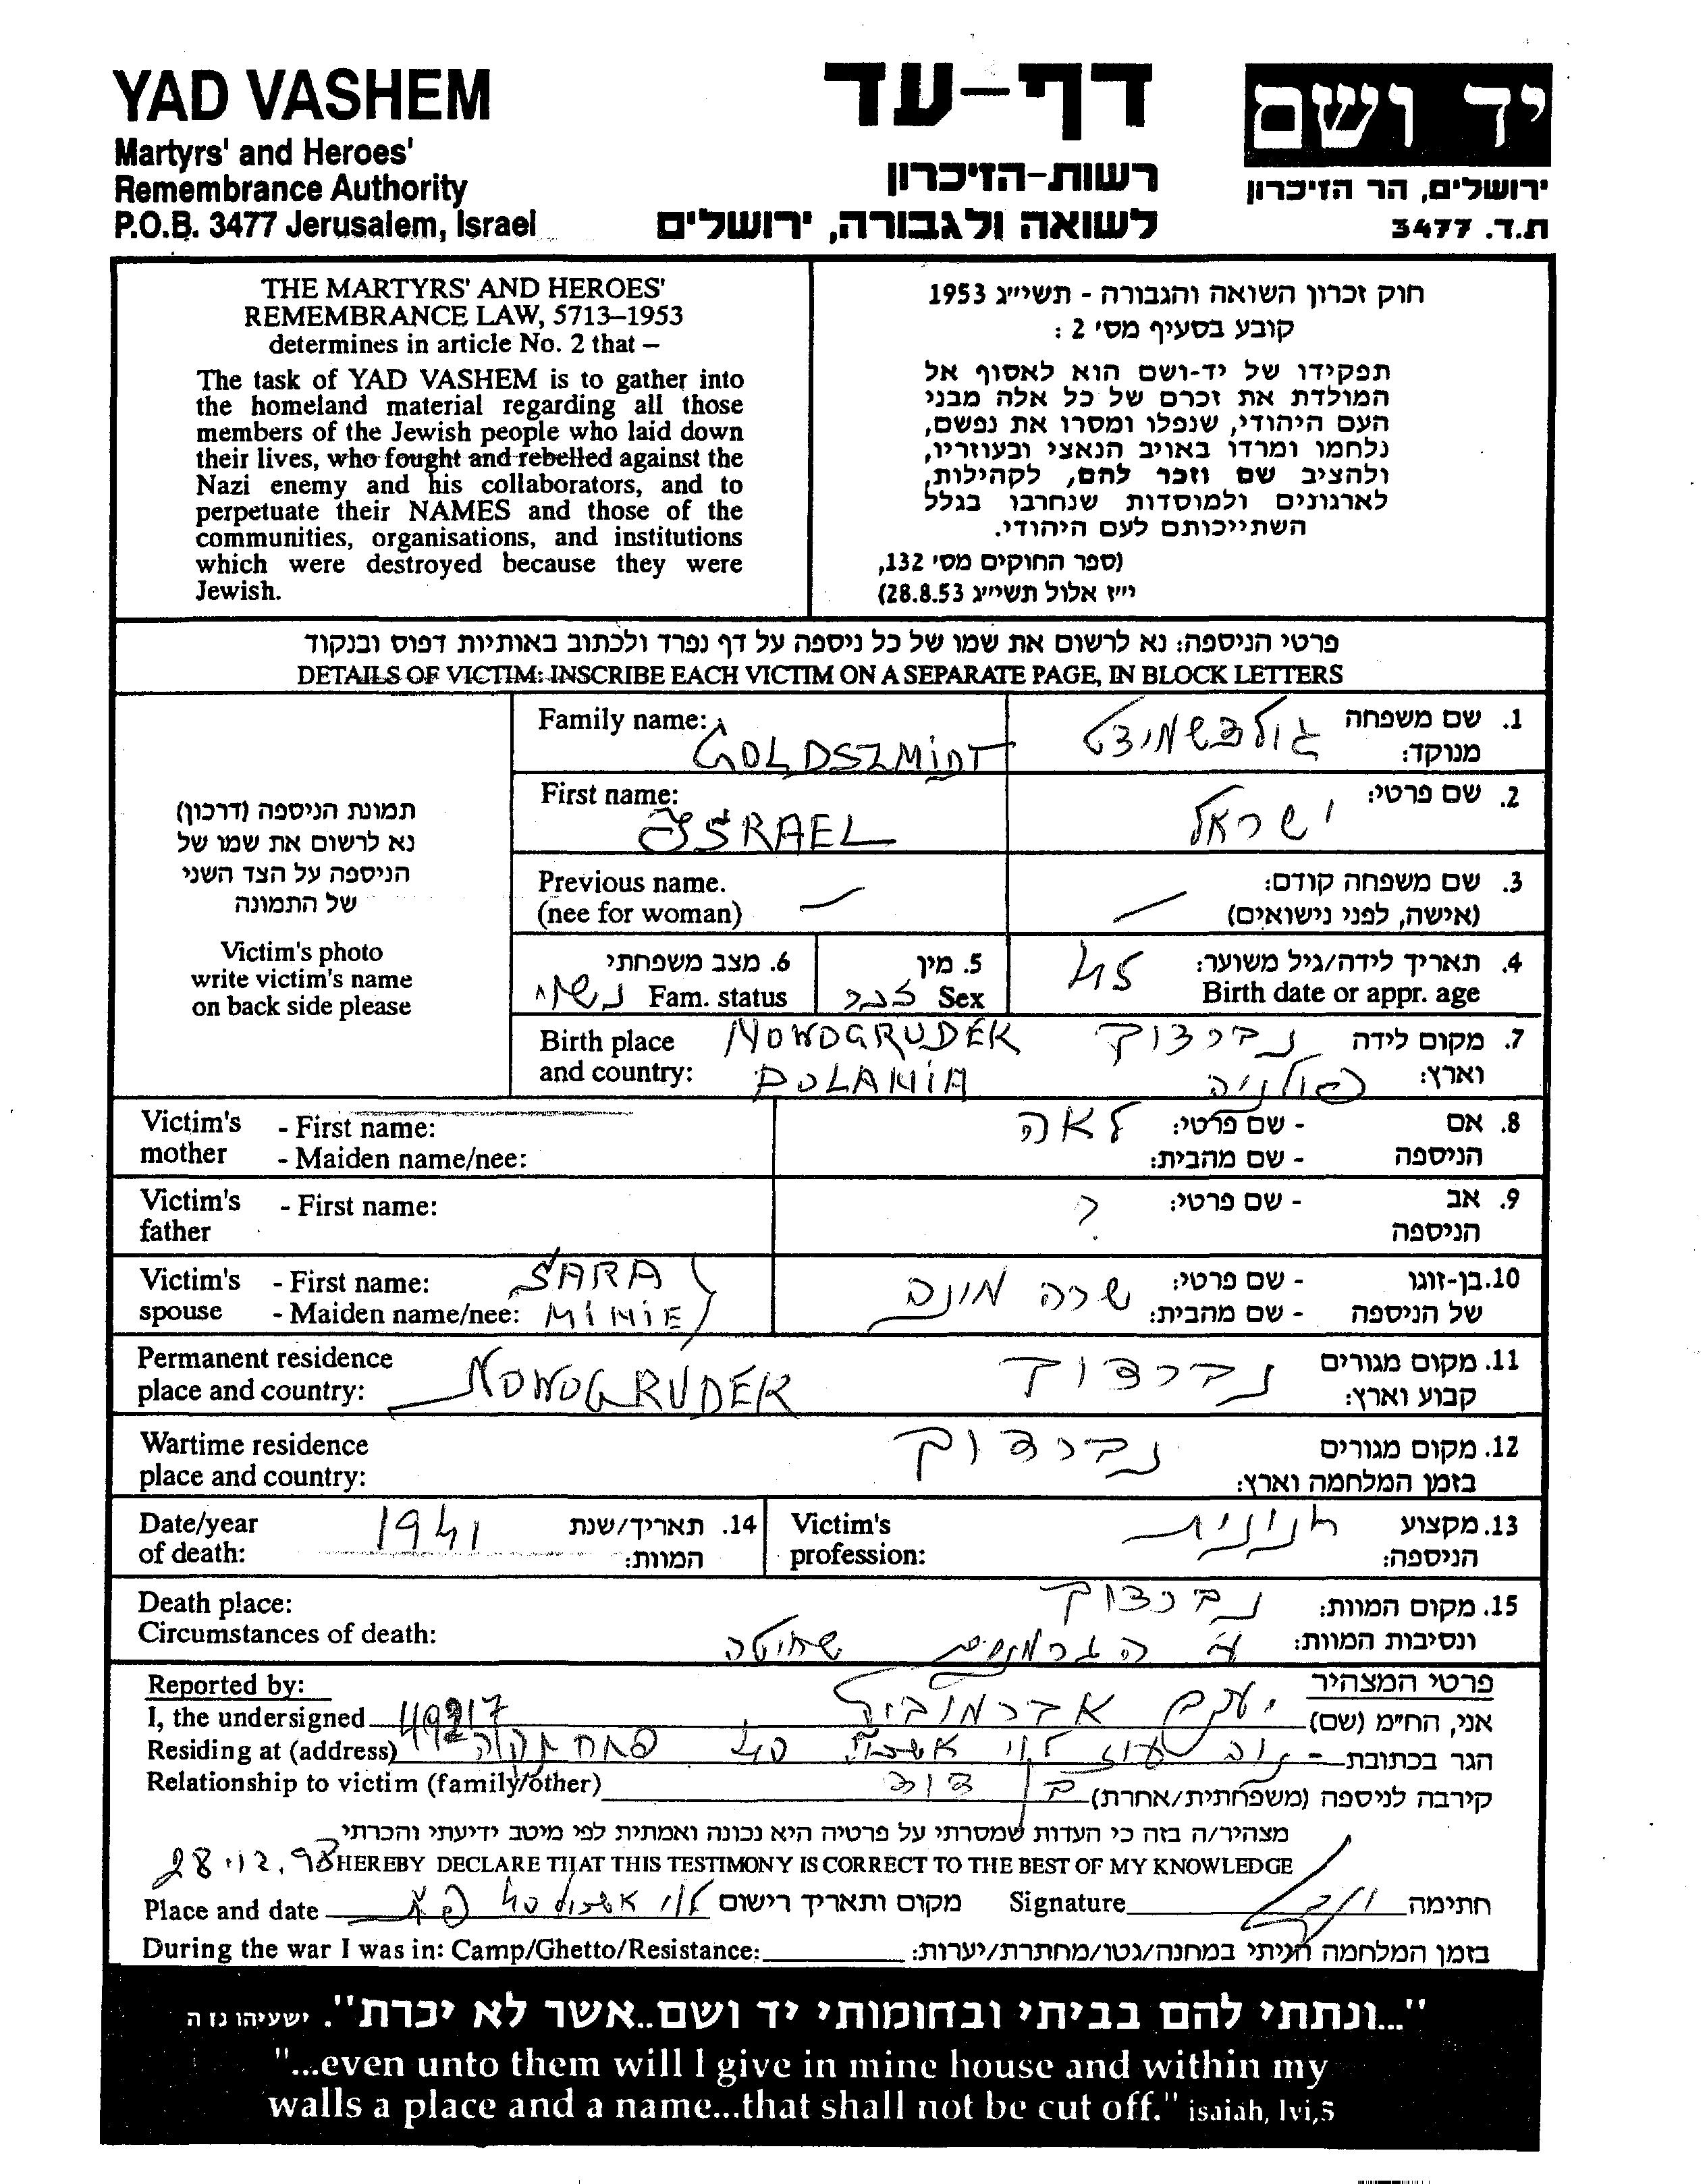 YAD VASHEM
Martyrs' and Heroes'
Remembrance Authority
P.O.B. 3477 Jerusalem, Israel
דף-עד
רשות-הזיכרון
לשואה ולגבורה, ירושלים
יד ושם
ירושלים, הר הזיכרון
ת.ד. 3477
THE MARTYRS' AND HEROES'
REMEMBRANCE LAW, 5713–1953
determines in article No. 2 that –
The task of YAD VASHEM is to gather into
the homeland material regarding all those
members of the Jewish people who laid down
their lives, who fought and rebelled against the
Nazi enemy and his collaborators, and to
perpetuate their NAMES and those of the
communities, organisations, and institutions
which were destroyed because they were
Jewish.
חוק זכרון השואה והגבורה - תשי״ג 1953
קובע בסעיף מס׳ 2 :
תפקידו של יד-ושם הוא לאסוף אל
המולדת את זכרם של כל אלה מבני
העם היהודי, שנפלו ומסרו את נפשם,
נלחמו ומרדו באויב הנאצי ובעוזריו,
ולהציב שם וזכר להם, לקהילות,
לארגונים ולמוסדות שנחרבו בגלל
השתייכותם לעם היהודי.
(ספר החוקים מס׳ 132,
י״ז אלול תשי״ג 28.8.53)
פרטי הניספה: נא לרשום את שמו של כל ניספה על דף נפרד ולכתוב באותיות דפוס ובנקוד
DETAILS OF VICTIM: INSCRIBE EACH VICTIM ON A SEPARATE PAGE, IN BLOCK LETTERS
תמונת הניספה (דרכון)
נא לרשום את שמו של
הניספה על הצד השני
של התמונה
Victim's photo
write victim's name
on back side please
Family name: GOLDSZMiDT
1. שם משפחה גולדשמידט
מנוקד:
First name: ISRAEL
2. שם פרטי: ישראל
Previous name. —
(nee for woman)
3. שם משפחה קודם: —
(אישה, לפני נישואים)
4. תאריך לידה/גיל משוער: 45
Birth date or appr. age
5. מין
Sex זכר
6. מצב משפחתי
Fam. status נשוי
Birth place NOWOGRUDEK
and country: POLANiA
7. מקום לידה נברדוק
וארץ: פולניה
Victim's mother - First name:
- Maiden name/nee:
8. אם הניספה - שם פרטי: לאה
- שם מהבית:
Victim's father - First name:
9. אב הניספה - שם פרטי: ?
Victim's spouse - First name: SARA
- Maiden name/nee: MiNiE
10. בן-זוגו של הניספה - שם פרטי: שרה
- שם מהבית:
Permanent residence
place and country: NOWOGRUDEK
11. מקום מגורים נברדוק
קבוע וארץ:
Wartime residence
place and country:
12. מקום מגורים נברדוק
בזמן המלחמה וארץ:
Date/year
of death: 1941
14. תאריך/שנת
המוות:
Victim's
profession:
13. מקצוע חנוני
הניספה:
Death place:
Circumstances of death:
15. מקום המוות: נברדוק
ונסיבות המוות: ע״י הגרמנים שחיטה
Reported by:
פרטי המצהיר
I, the undersigned 49217
אני, החי״מ (שם) יעקב אברמוביץ
Residing at (address)
הגר בכתובת - לוי אשכול 40 פתח תקוה
Relationship to victim (family/other)
קירבה לניספה (משפחתית/אחרת) בן דוד
מצהיר/ה בזה כי העדות שמסרתי על פרטיה היא נכונה ואמתית לפי מיטב ידיעתי והכרתי
28.12.98 HEREBY DECLARE THAT THIS TESTIMONY IS CORRECT TO THE BEST OF MY KNOWLEDGE
Place and date מקום ותאריך רישום לוי אשכול 40 פ״ת
Signature חתימה
During the war I was in: Camp/Ghetto/Resistance: בזמן המלחמה הייתי במחנה/גטו/מחתרת/יערות:
"...ונתתי להם בביתי ובחומותי יד ושם..אשר לא יכרת". ישעיהו נו ה
"...even unto them will I give in mine house and within my
walls a place and a name...that shall not be cut off." isaiah, lvi,5